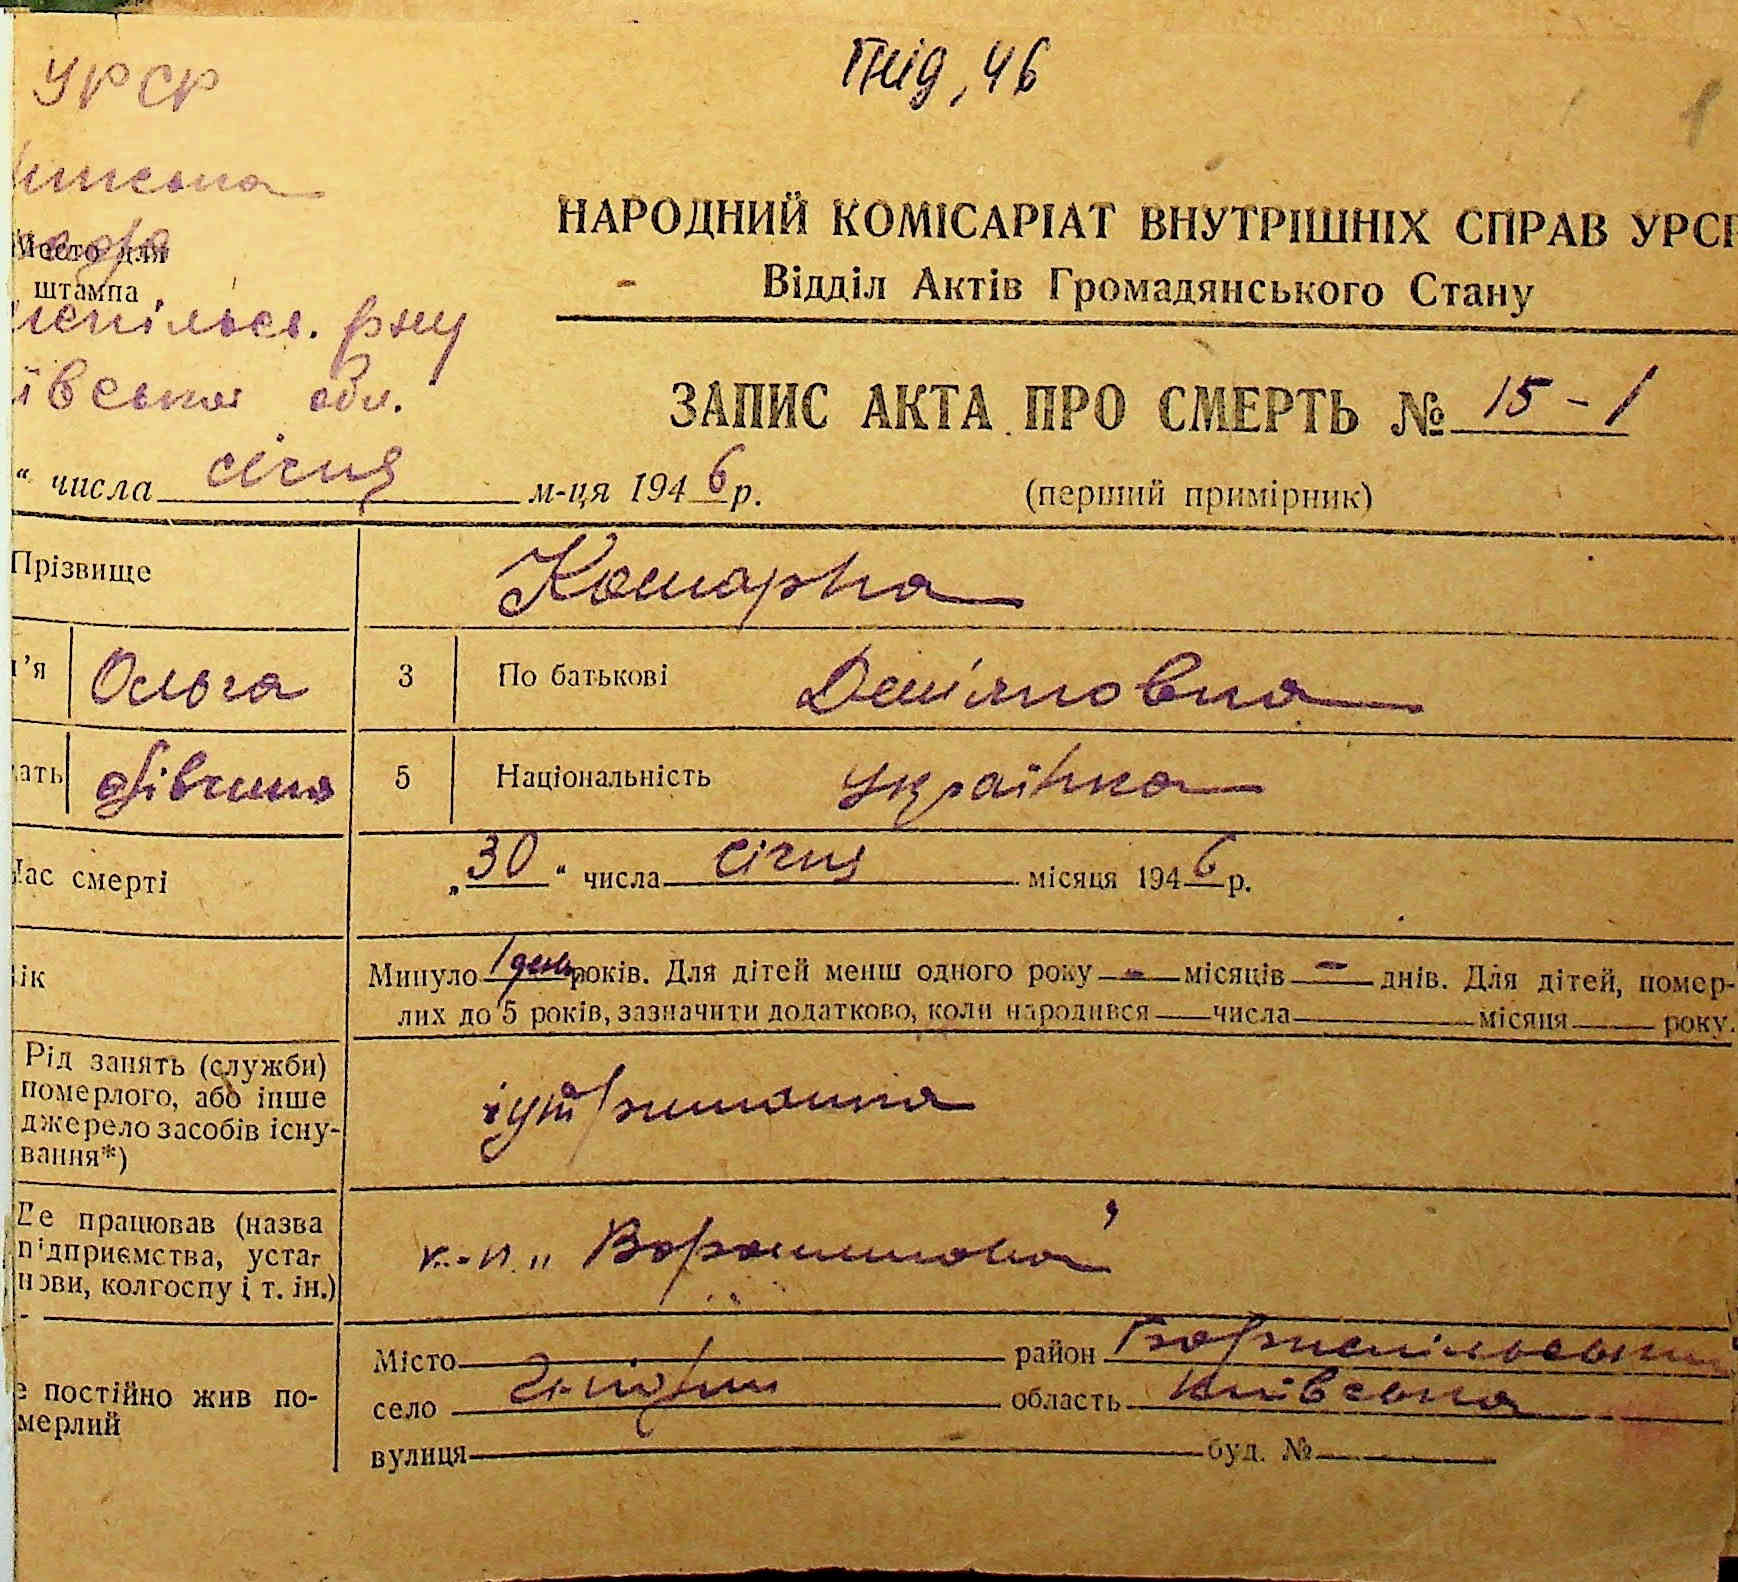 Гнід, 46
1
УРСР
Место для
штампа
рну
ївська обл.
НАРОДНИЙ КОМІСАРІАТ ВНУТРІШНІХ СПРАВ УРСР
Відділ Актів Громадянського Стану
ЗАПИС АКТА ПРО СМЕРТЬ № 15 - 1
“ числа січня м-ця 1946 р. (перший примірник)
Прізвище Комарна
м'я Ольга 3 По батькові Дем'яновна
ать дівчина 5 Національність українка
Час смерті „30“ числа січня місяця 1946 р.
ік Минуло 1 день років. Для дітей менш одного року - місяців - днів. Для дітей, помер-
лих до 5 років, зазначити додатково, коли народився числа місяця року.
Рід занять (служби)
померлого, або інше
джерело засобів існу-
вання*)
утримання
Де працював (назва
підприємства, уста-
нови, колгоспу і т. ін.)
к-п „Ворошилова"
е постійно жив по-
мерлий
Місто район Бориспільський
село Гнідин область Київська
вулиця буд. №